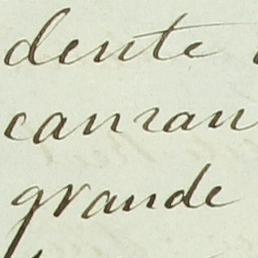 dente
canzan
grande